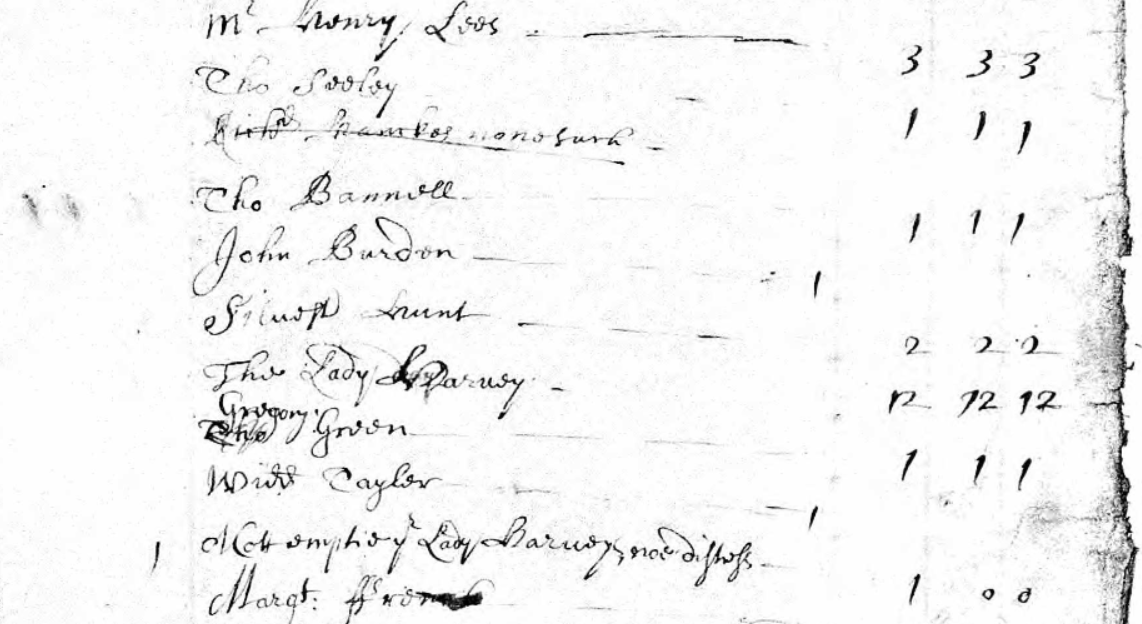 Mr Henry Lees
3 3 3
Tho Seeley
1 1 1
Richd Hanckes none such
Tho Bannell
1 1 1
John Burdon
1
Silvest Hunt
2 2 2
The Lady Harvey
12 12 12
Gregory
Green
1 1 1
Widd Tayler
1
1 Mott emptie ye Lady Harvey noe distess
Margt: ffren
1 0 0